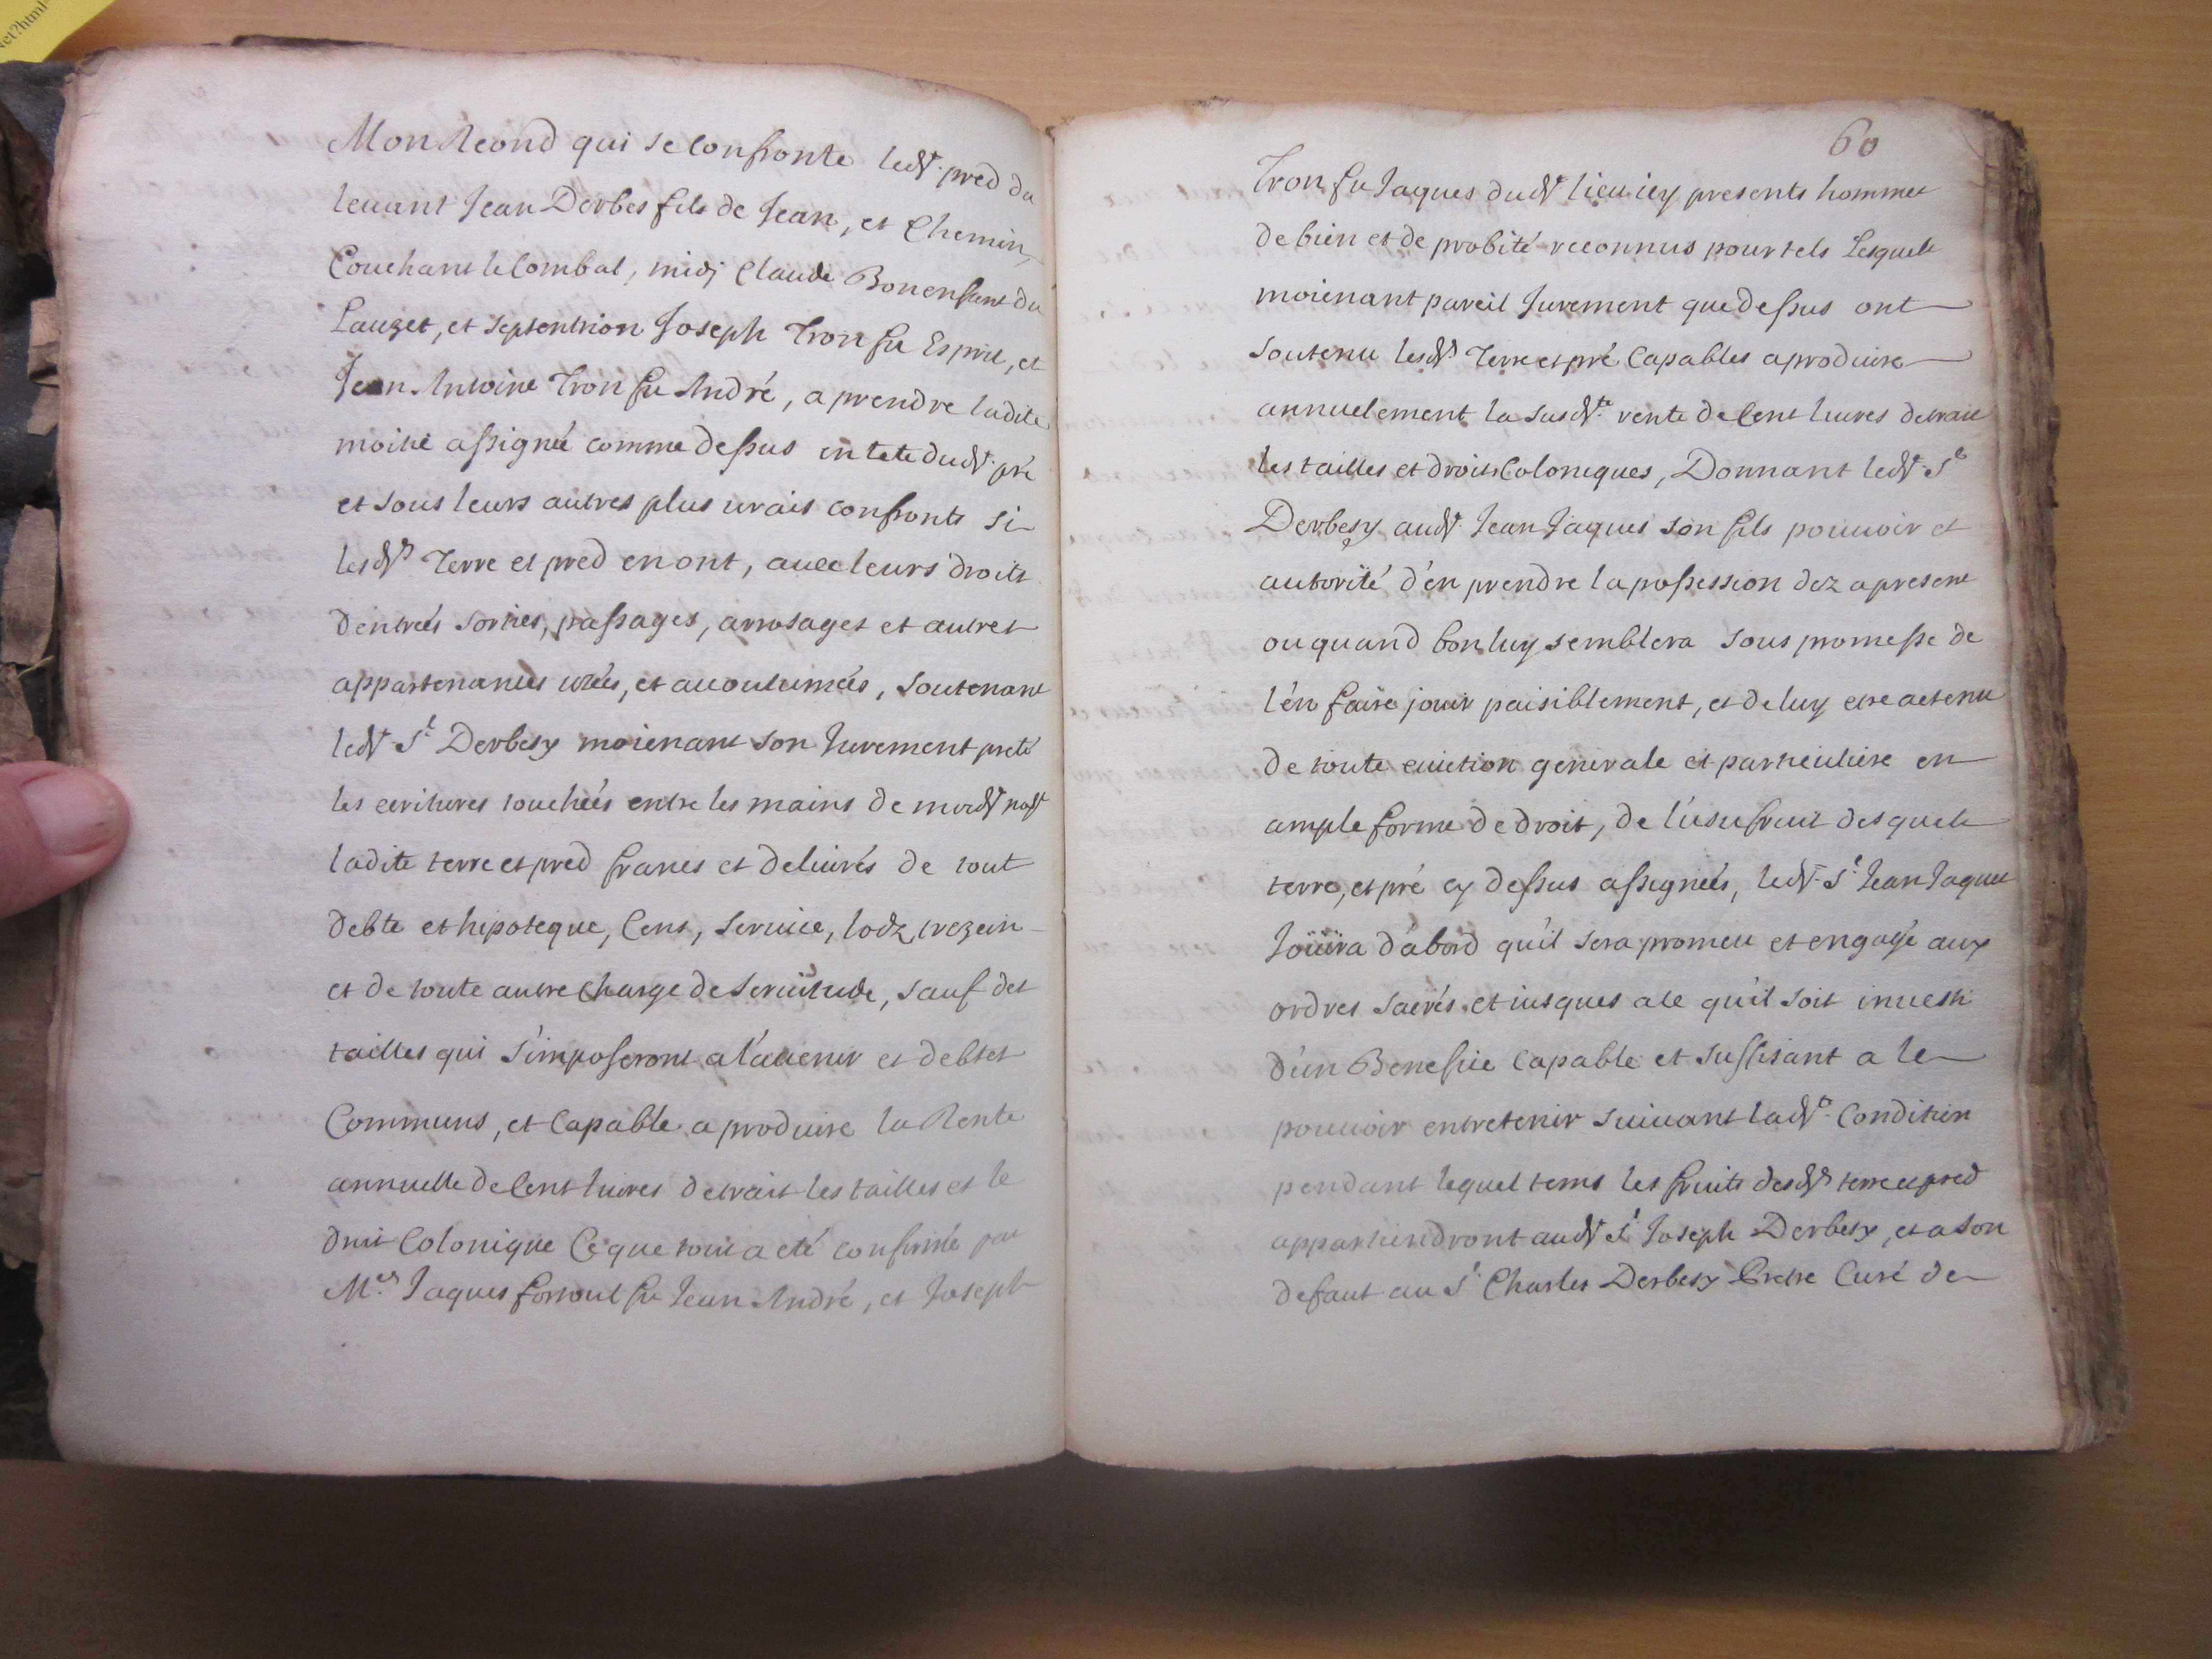 et?html
Mon Reond qui se confronte led.t pred du
levant Jean Derbes fils de Jean, et Chemin,
Couchant le Combal, midj Claude Bonenfant du
Lauzet, et septentrion Joseph Tron fu Esprit, et
Jean Antoine Tron fu André, a prendre ladite
moitié assignée comme dessus en tete dud.t pré
et sous leurs autres plus vrais confronts si
lesd.ts Terre et pred en ont, avec leurs droits
d'entrées sorties, passages, arrosages et autres
appartenances uzées, et acoutumées, soutenant
led.t S.r Derbesy moienant son Jurement preté
les ecritures touchées entre les mains de moid.t not.
ladite terre et pred francs et delivrés de tout
debte et hipoteque, Cens, service, lodz, trezein
et de toute autre charge de servitude, sauf des
tailles qui s'imposeront a l'avenir et debtes
Communs, et Capable a produire la Rente
annuelle de Cent livres detrait les tailles et le
droit Colonique Ce que tout a eté confirmé par
M.es Jaques fortoul fu Jean André, et Joseph
60
Tron fu Jaques dud.t lieu icy presents hommes
de bien et de probité reconnus pour tels Lesquels
moienant pareil Jurement que dessus ont
soutenu lesd.ts Terre et pré Capables a produire
annuelement la susd.te rente de Cent livres detrait
les tailles et droits Coloniques, Donnant led.t S.r
Derbesy aud.t Jean Jaques son fils pouvoir et
autorité d'en prendre la possession dez a present
ou quand bon luy semblera sous promesse de
l'en faire jouir paisiblement, et de luy etre actenu
de toute eviction generale et particuliere en
ample forme de droit, de l'usufruit desquels
terre, et pré cy dessus assignées, led.t S.r Jean Jaques
Joüira d'abord qu'il sera promeu et engagé aux
ordres sacrés et jusques a ce qu'il soit investi
d'un Benefice capable et suffisant a le
pouvoir entretenir suivant lad.te Condition
pendant lequel tems les fruits desd.ts terre et pred
appartiendront aud.t S.r Joseph Derbesy, et a son
defaut au S.r Charles Derbesy Pretre Curé de